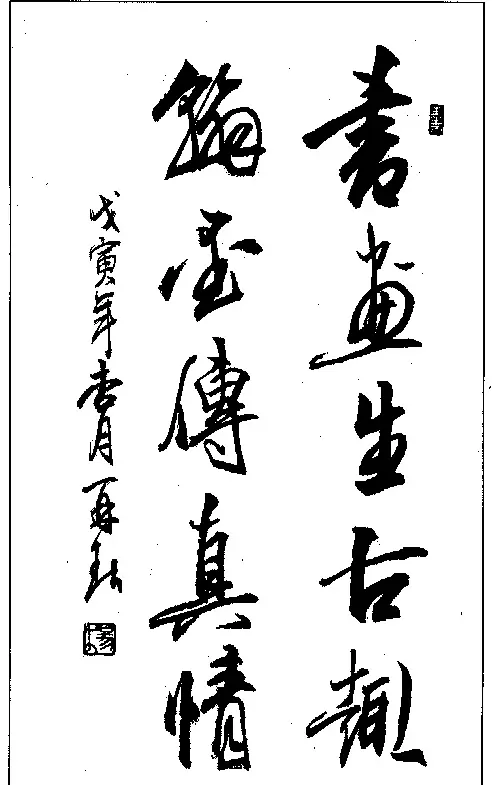 書畫生古趣
翰墨傳真情
戊寅年杏月